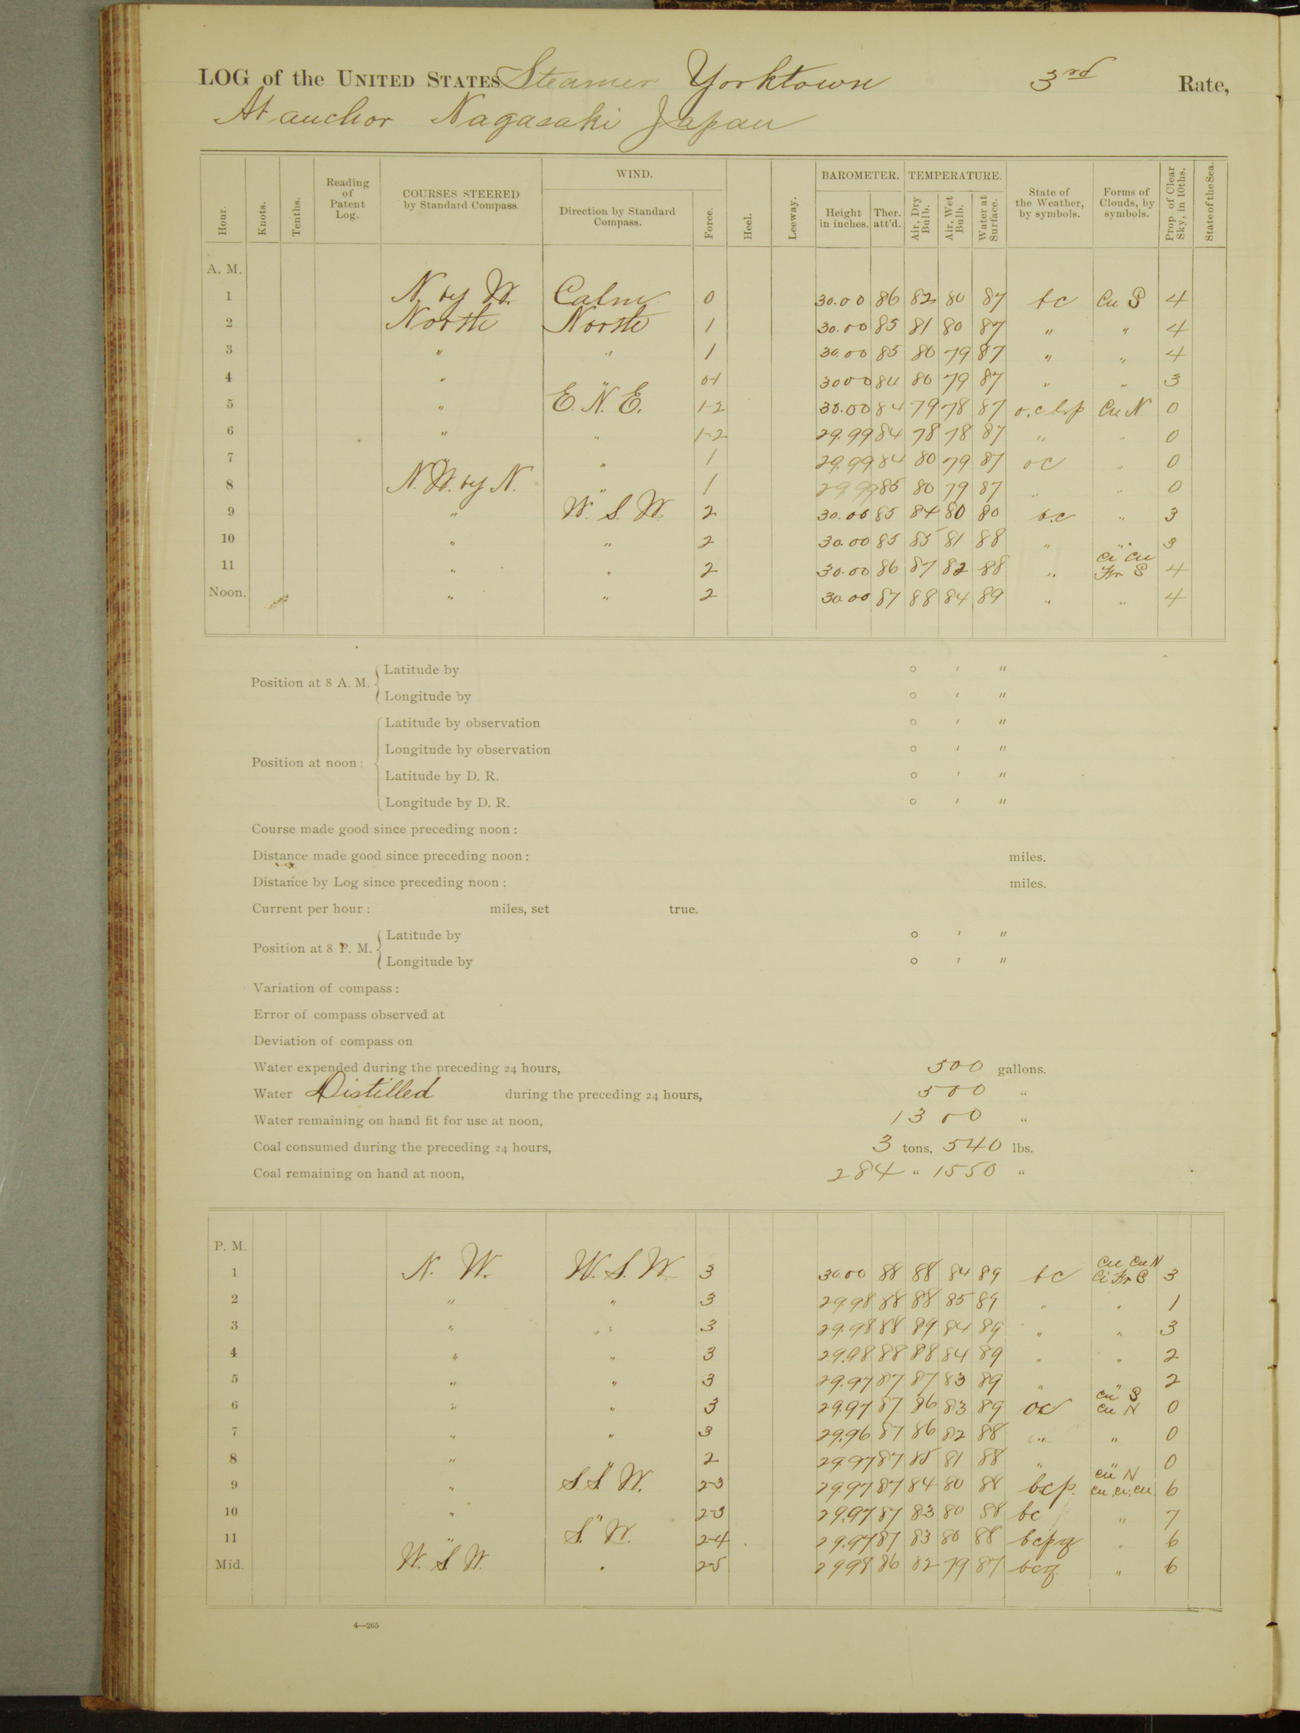 LOG of the UNITED STATES Steamer Yorktown 3rd Rate,
At anchor Nagasaki Japan
Hour. Knots. Tenths. Reading of Patent Log. COURSES STEERED by Standard Compass. WIND. Direction by Standard Compass. Force. Heel. Leeway. BAROMETER. Height in inches. Ther. att'd. TEMPERATURE. Air, Dry Bulb. Air, Wet Bulb. Water at Surface. State of the Weather, by symbols. Forms of Clouds, by symbols. Prop. of Clear Sky, in 10ths. State of the Sea.
A. M.
1 N. by W. Calm 0 30.00 86 82 80 87 bc Cu S 4
2 North North 1 30.00 85 81 80 87 " " 4
3 " " 1 30.00 85 80 79 87 " " 4
4 " " 0-1 30 00 84 80 79 87 " " 3
5 " E. N. E. 1-2 30.00 84 79 78 87 Cu N 0
6 " " 1-2 29.99 84 78 78 87 " " 0
7 " " 1 29.99 84 80 79 87 oc " 0
8 N. W. by N. " 1 29.99 85 80 79 87 " " 0
9 " W. S. W. 2 30.00 85 84 80 80 b.c " 3
10 " " 2 30.00 85 85 81 88 " " 3
11 " " 2 30.00 86 87 82 88 " Ci Cu S 4
Noon. " " 2 30.00 87 88 84 89 " " 4
Position at 8 A. M. Latitude by ° ′ ″
Longitude by ° ′ ″
Position at noon: Latitude by observation ° ′ ″
Longitude by observation ° ′ ″
Latitude by D. R. ° ′ ″
Longitude by D. R. ° ′ ″
Course made good since preceding noon:
Distance made good since preceding noon: miles.
Distance by Log since preceding noon: miles.
Current per hour: miles, set true.
Position at 8 P. M. Latitude by ° ′ ″
Longitude by ° ′ ″
Variation of compass:
Error of compass observed at
Deviation of compass on
Water expended during the preceding 24 hours, 500 gallons.
Water Distilled during the preceding 24 hours, 500 "
Water remaining on hand fit for use at noon, 1300 "
Coal consumed during the preceding 24 hours, 3 tons, 540 lbs.
Coal remaining on hand at noon, 284 " 1550 "
P. M.
1 N. W. W. S. W. 3 30.00 88 88 84 89 bc Cu Cu N Ci 3
2 " " 3 29.98 88 88 85 89 " " 1
3 " " 3 29.98 88 89 84 89 " " 3
4 " " 3 29.98 88 88 84 89 " " 2
5 " " 3 29.97 87 87 83 89 " " 2
6 " " 3 29.97 87 86 83 89 oc Cu S Cu N 0
7 " " 3 29.96 87 86 82 88 " " 0
8 " " 2 29.97 87 85 81 88 " " 0
9 " S. S. W. 2-3 29.97 87 84 80 88 bcp. Cu N Cu. Ci. Cu 6
10 " " 2-3 29.97 87 83 80 88 bc " 7
11 " S. W. 2-4 29.97 87 83 80 88 bcpq " 6
Mid. W. S. W. " 2-5 29 98 86 82 79 87 bcq " 6
4—265